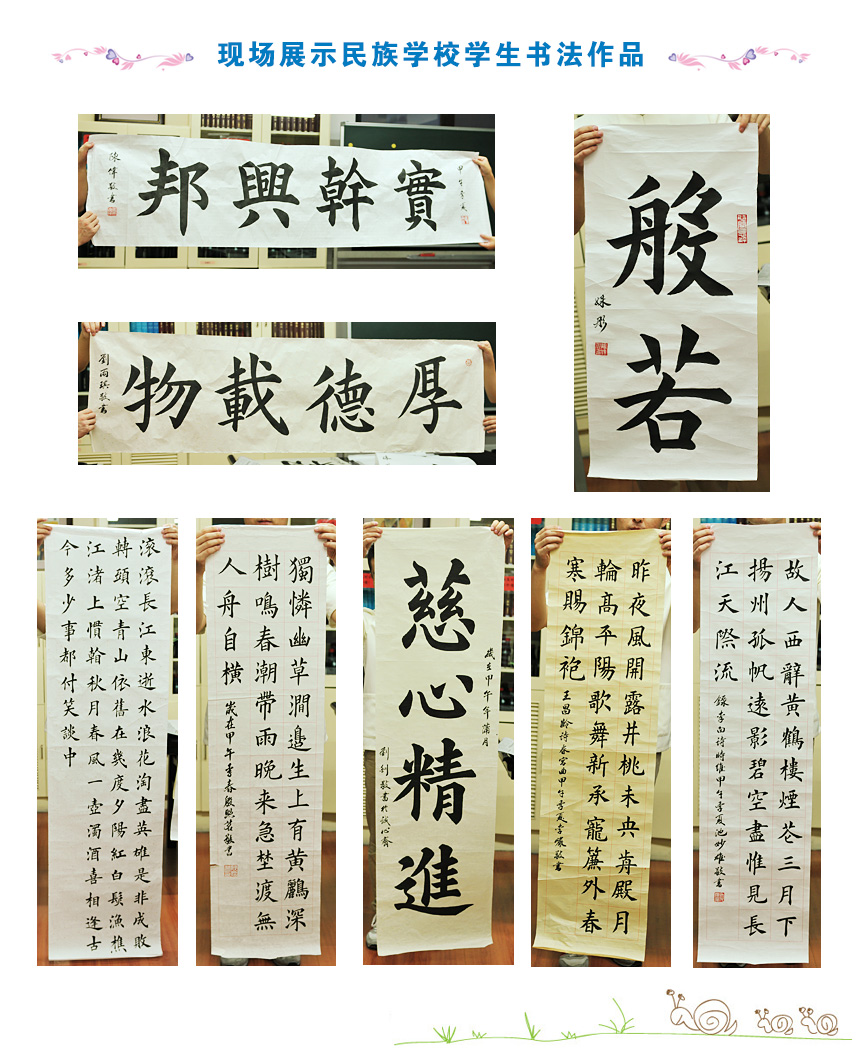 现场展示民族学校学生书法作品
甲午季夏
實幹興邦
陳偉敬書
般若
姝彤
厚德載物
劉雨琪敬書
滾滾長江東逝水浪花淘盡英雄是非成敗
轉頭空青山依舊在幾度夕陽紅白髮漁樵
江渚上慣看秋月春風一壺濁酒喜相逢古
今多少事都付笑談中
獨憐幽草澗邊生上有黃鸝深
樹鳴春潮帶雨晚来急埜渡無
人舟自橫
歲在甲午季春殷熙茗敬書
歲在甲午年蒲月
慈心精進
劉利敬書於誠心齋
昨夜風開露井桃未央歬殿月
輪高平陽歌舞新承寵簾外春
寒賜錦袍
王昌齡詩春宮曲甲午季夏李嚴敬書
故人西辭黃鶴樓煙花三月下
揚州孤帆遠影碧空盡惟見長
江天際流
錄李白詩時維甲午季夏池妙雄敬書